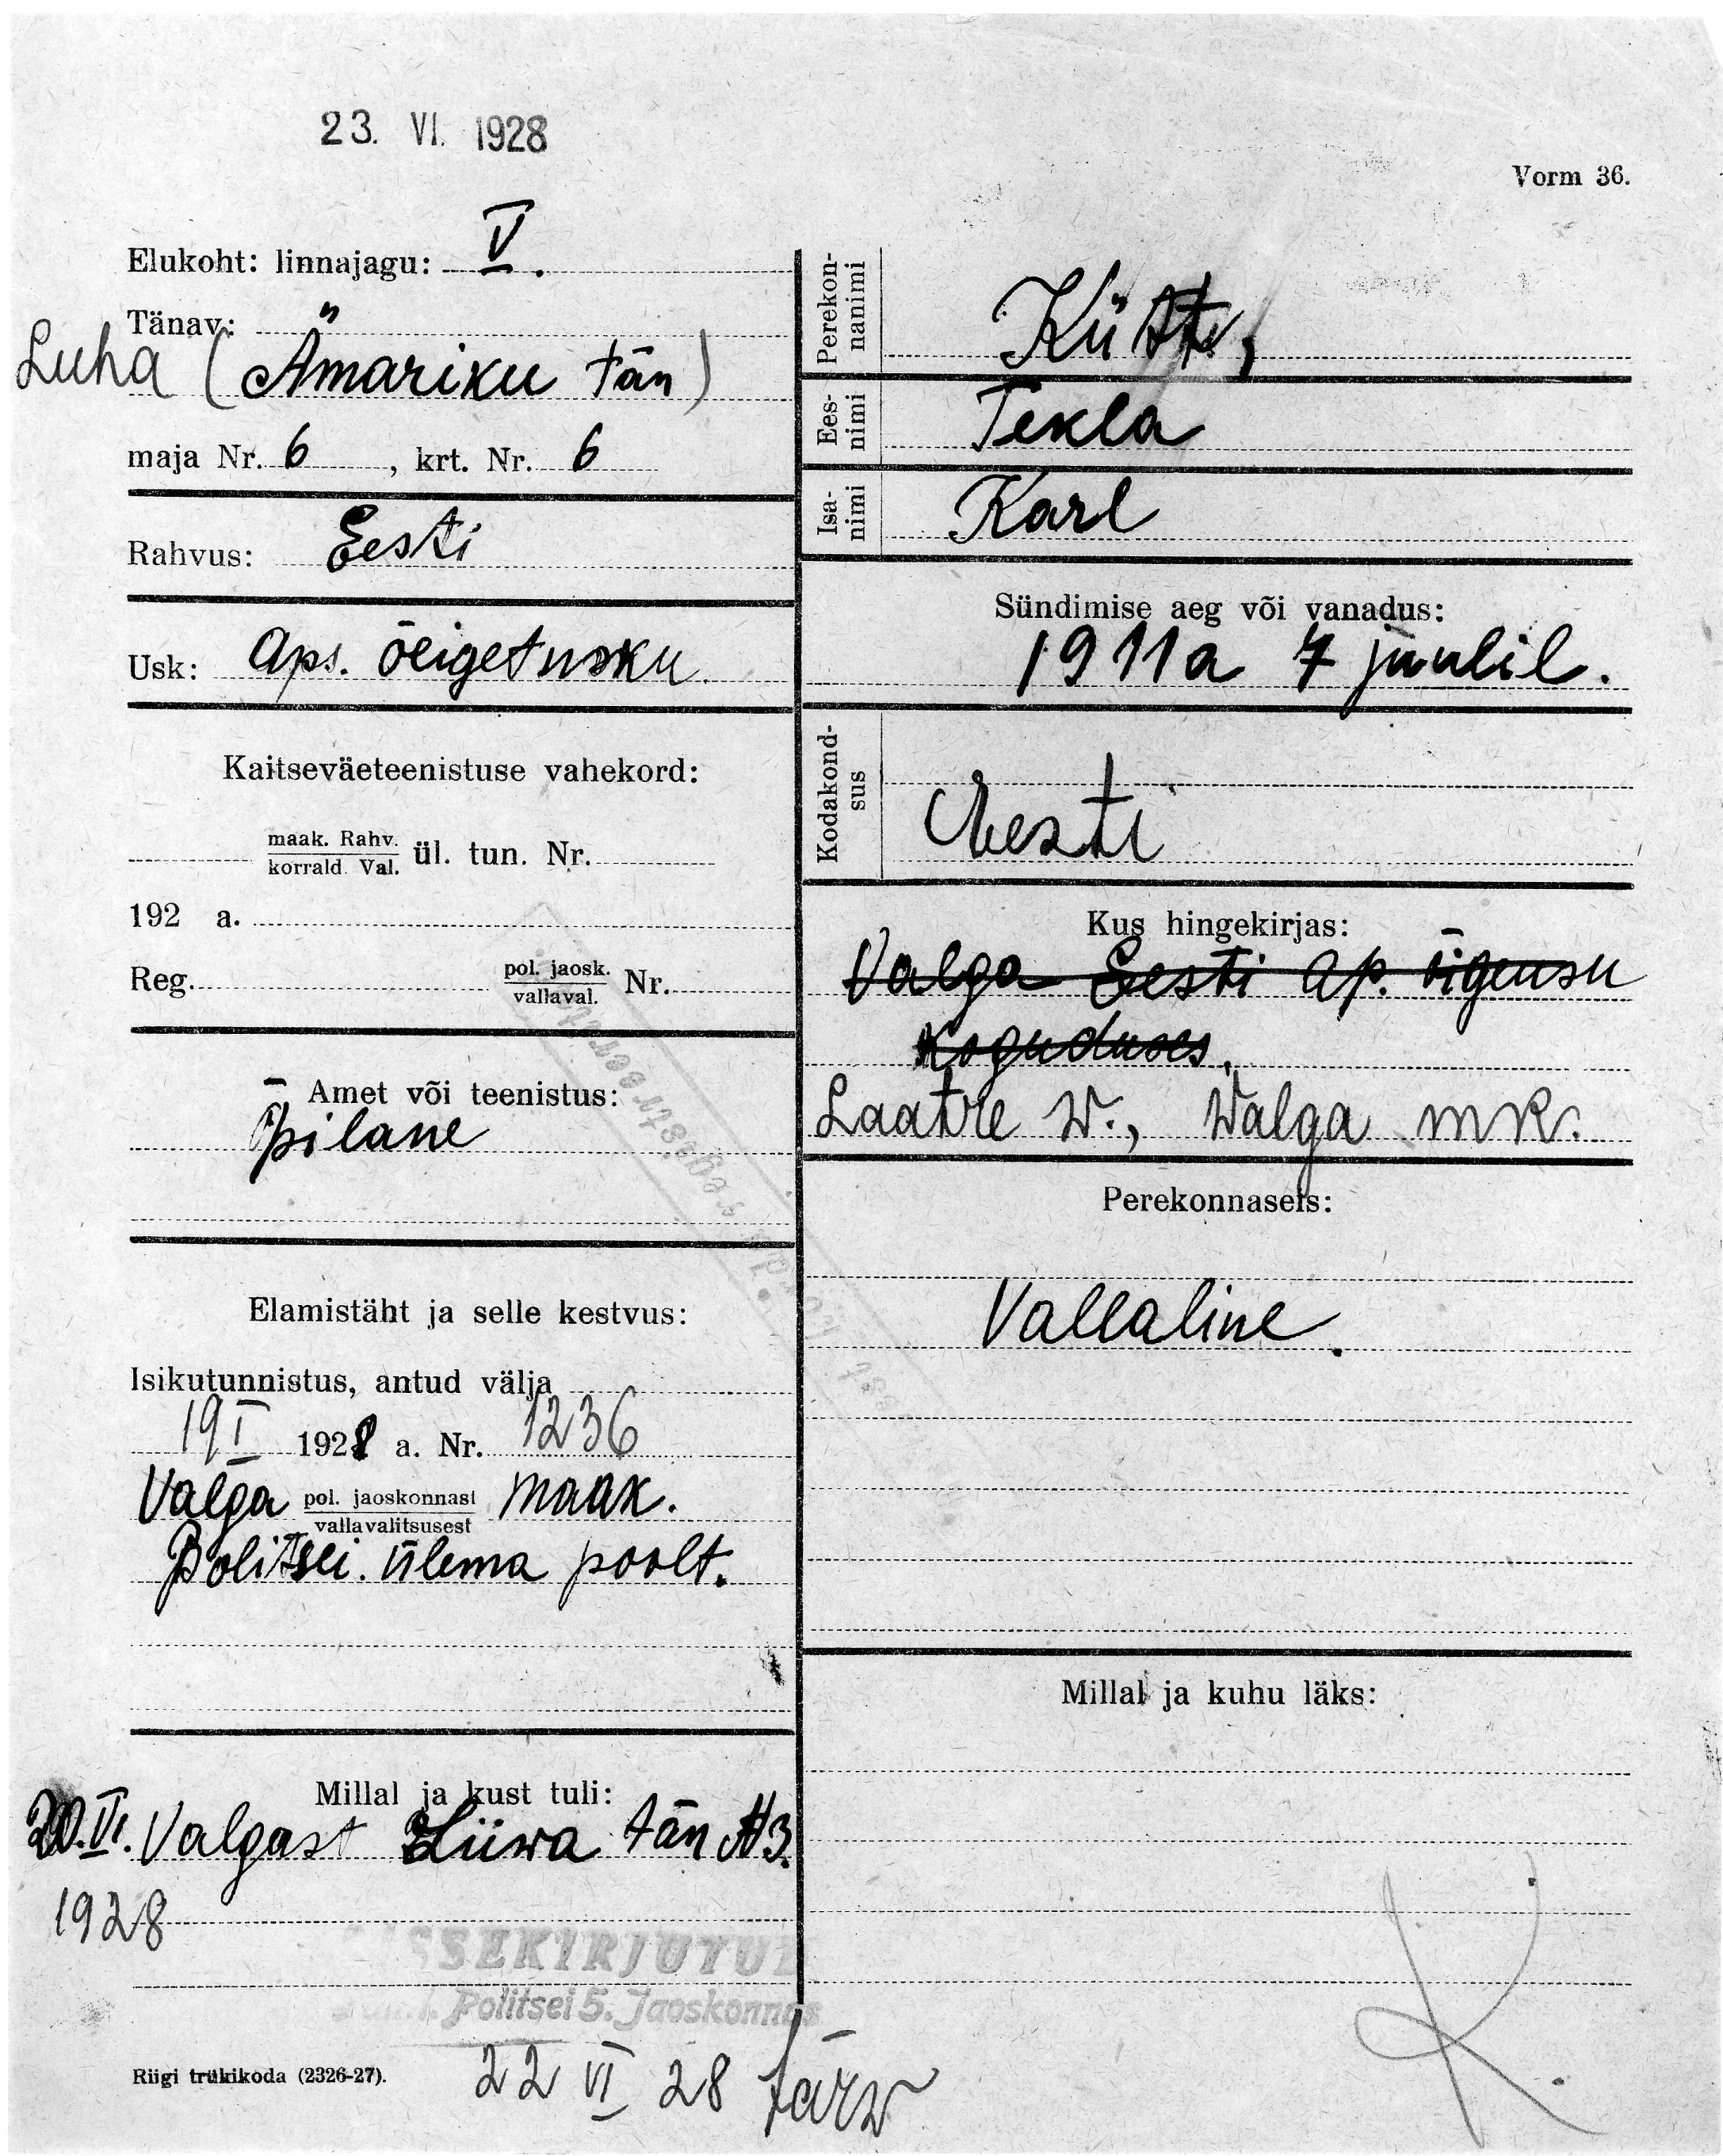 23. VI. 1928
Vorm 36.
Elukoht: linnajagu: V.
Tänav:
Luha (Ämariku tän)
maja Nr. 6, krt. Nr. 6
Rahvus: Eesti
Usk: Aps. õeigetusku.
Kaitseväeteenistuse vahekord:
maak. Rahv.
korrald. Val. ül. tun. Nr.
192 a.
Reg. pol. jaosk.
vallaval. Nr.
Amet või teenistus:
Õpilane
Elamistäht ja selle kestvus:
Isikutunnistus, antud välja
19 I 1928 a. Nr. 1236
Valga pol. jaoskonnast maak.
vallavalitsusest
Politsei. ülema poolt.
Millal ja kust tuli:
20.VI. Valgast Liiwa tän N3.
1928
SSEKIRJUTUD
Politsei 5. Jaoskonnas
22 VI 28 Järw
Riigi trükikoda (2326-27).
Perekon-
nanimi
Ees-
nimi Tekla
Isa-
nimi Karl
Sündimise aeg või vanadus:
1911a 7 juulil.
Kodakond-
sus Eesti
Kus hingekirjas:
Valga Eesti Ap. õigeusu
Koguduses,
Laatre W., Walga mk.
Perekonnaseis:
Vallaline.
Millal ja kuhu läks:
K.